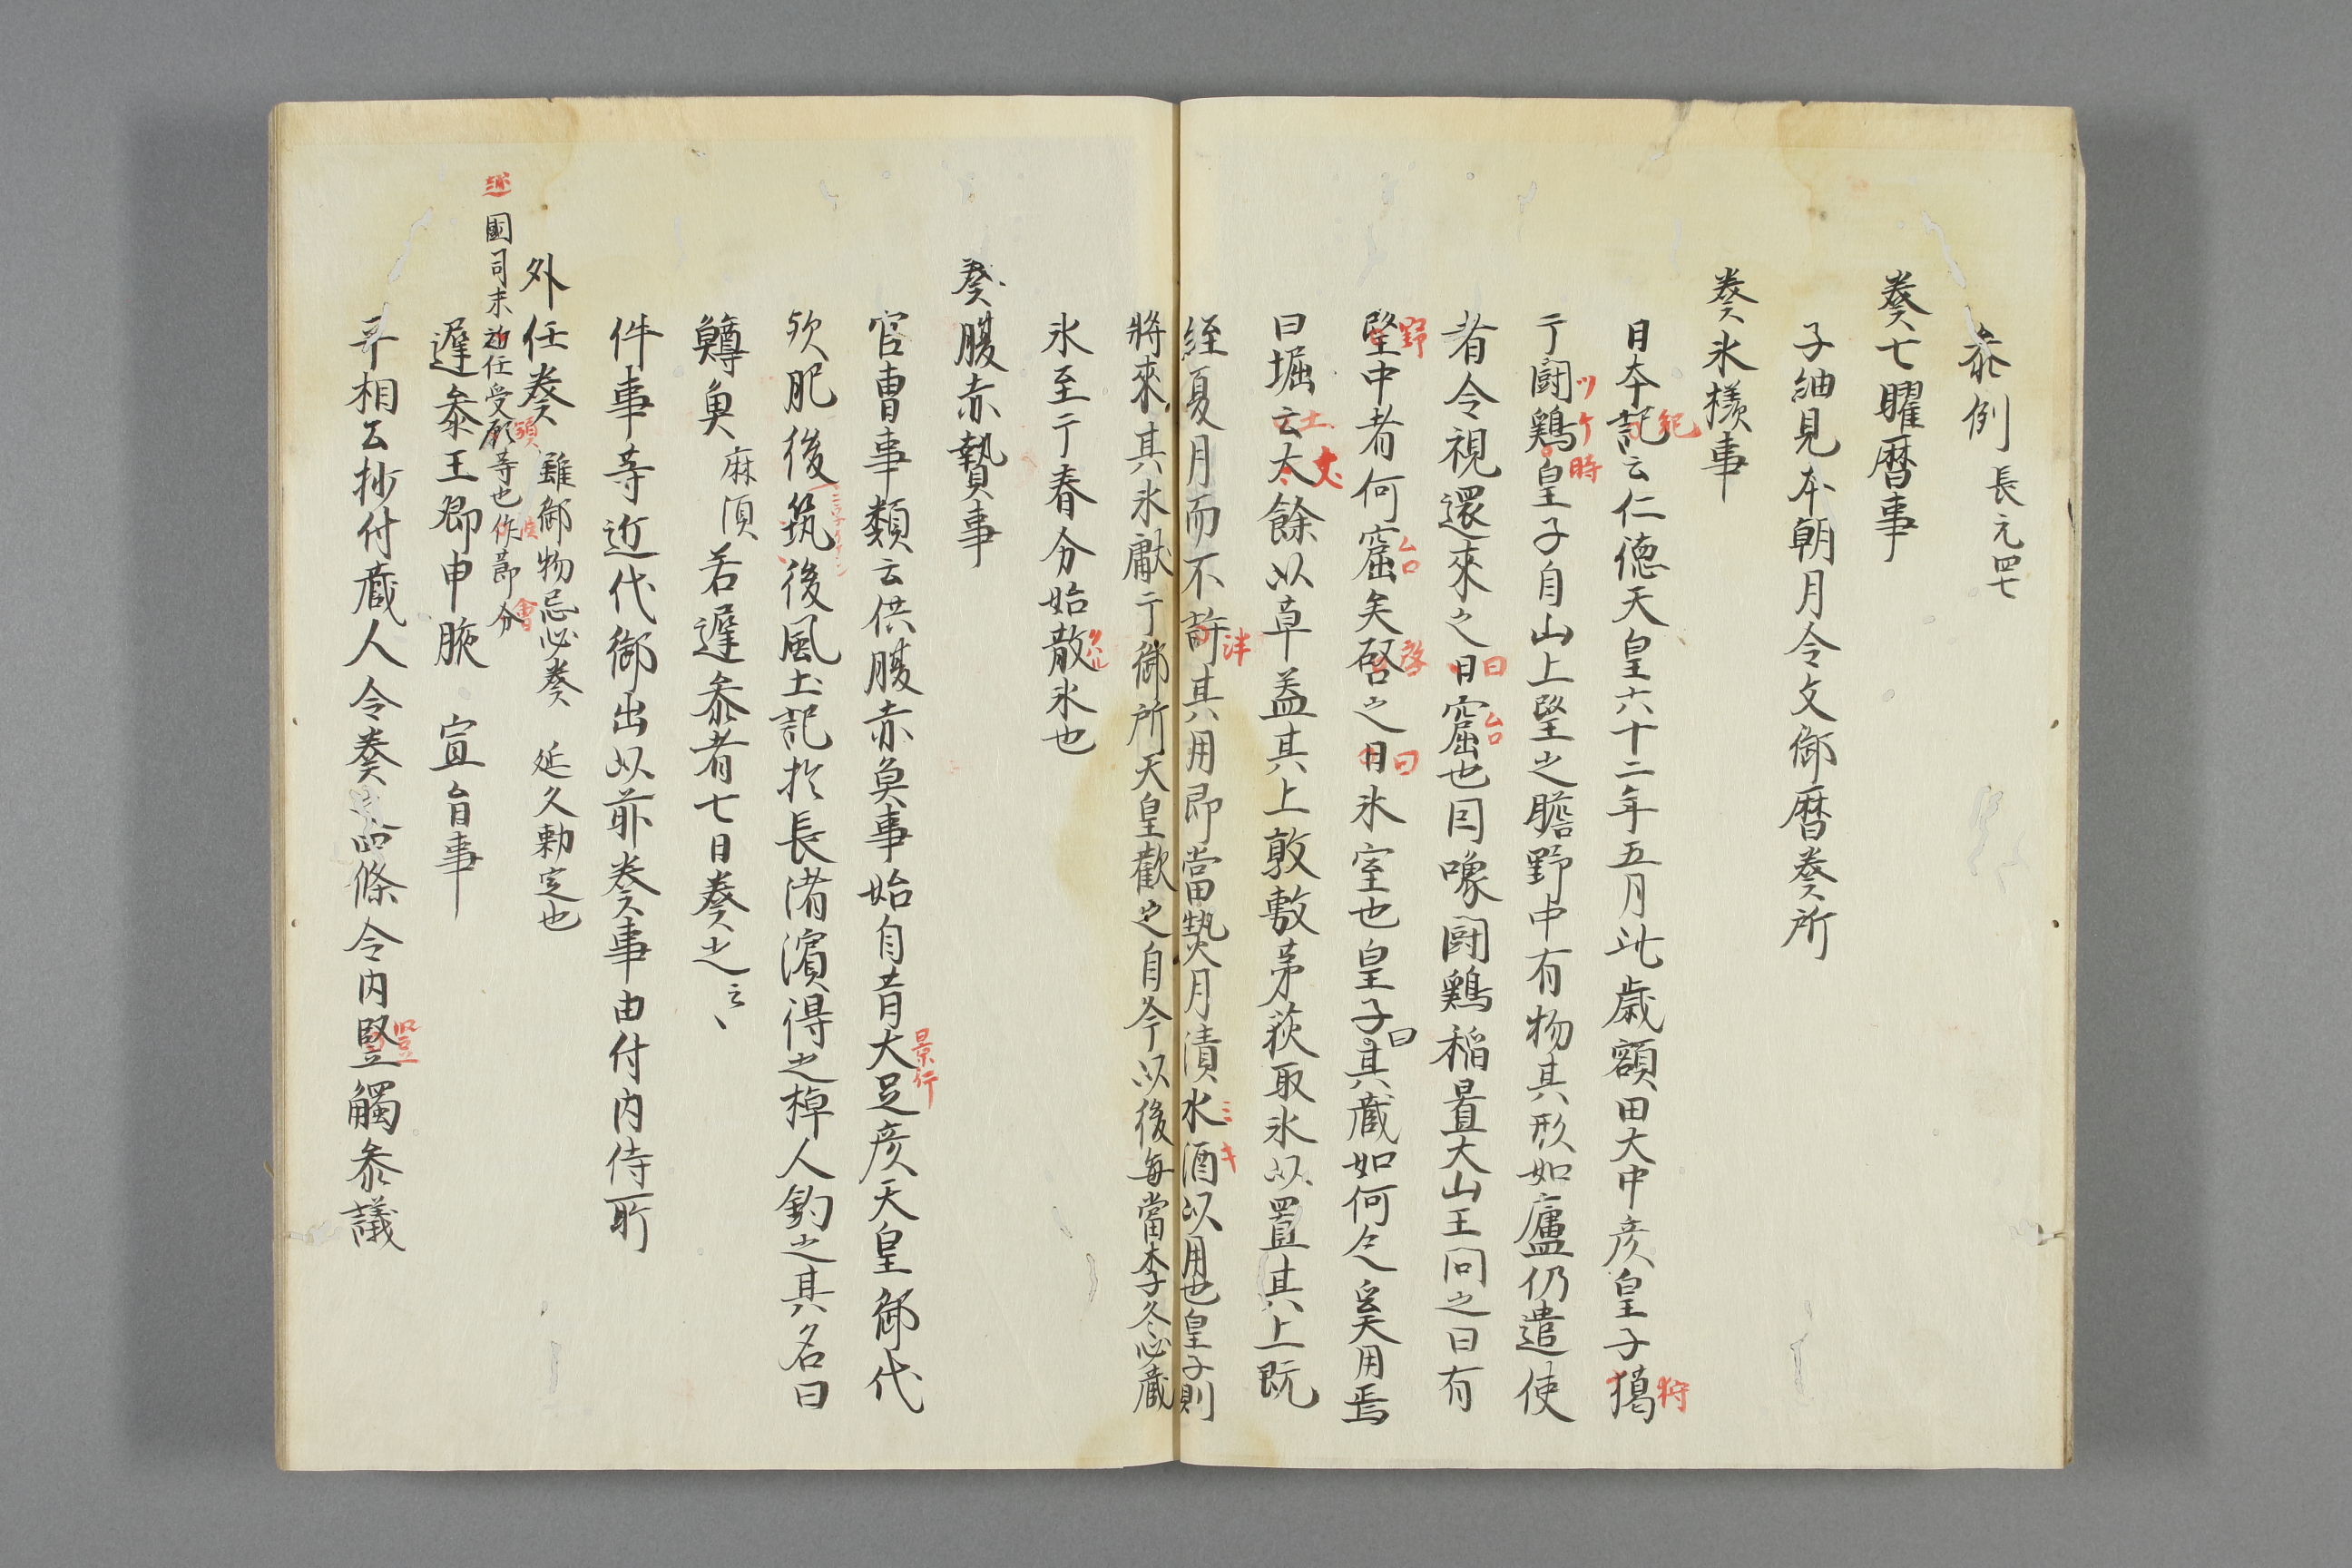 参例 長元四七
奏七曜暦事
子細見本朝月令文御暦奏所
奏氷様事
日本記云仁徳天皇六十二年五月此歳額田大中彦皇子猲
紀
狩
于闘鶏皇子自山上望之瞻野中有物其形如廬仍遣使
ツケ時
者令視還来之日窟也因喚闘鶏稲置大山主問之曰有
曰
ムロ
望中者何窟矣啓之日氷室也皇子曰其蔵如何亦奚用焉
野
ムロ
啓
曰
曰堀云太餘以草盖其上敦敷茅荻取氷以置其上既
土
丈
経夏月而不許其用即當熱月漬水酒以用也皇子則
泮
ミキ
将来其氷献于御所天皇歓之自今以後毎當李冬必蔵
氷至于春分始散氷也
クハル
奏腹赤贄事
官曹事類云供腹赤魚事始自昔大足彦天皇御代
景行
欤肥後筑後風土記於長渚濱得之棹人釣之其名曰
鱒魚 麻湏 若遅参者七日奏之云々
件事等近代御出以前奏事由付内侍所
外任奏 雖御物忌必奏 延久勅定也
國司未赴任受領等也 節會
遅参王卿申腋 宣旨事
平相公抄付蔵人令奏 四條令内竪觸参議
竪